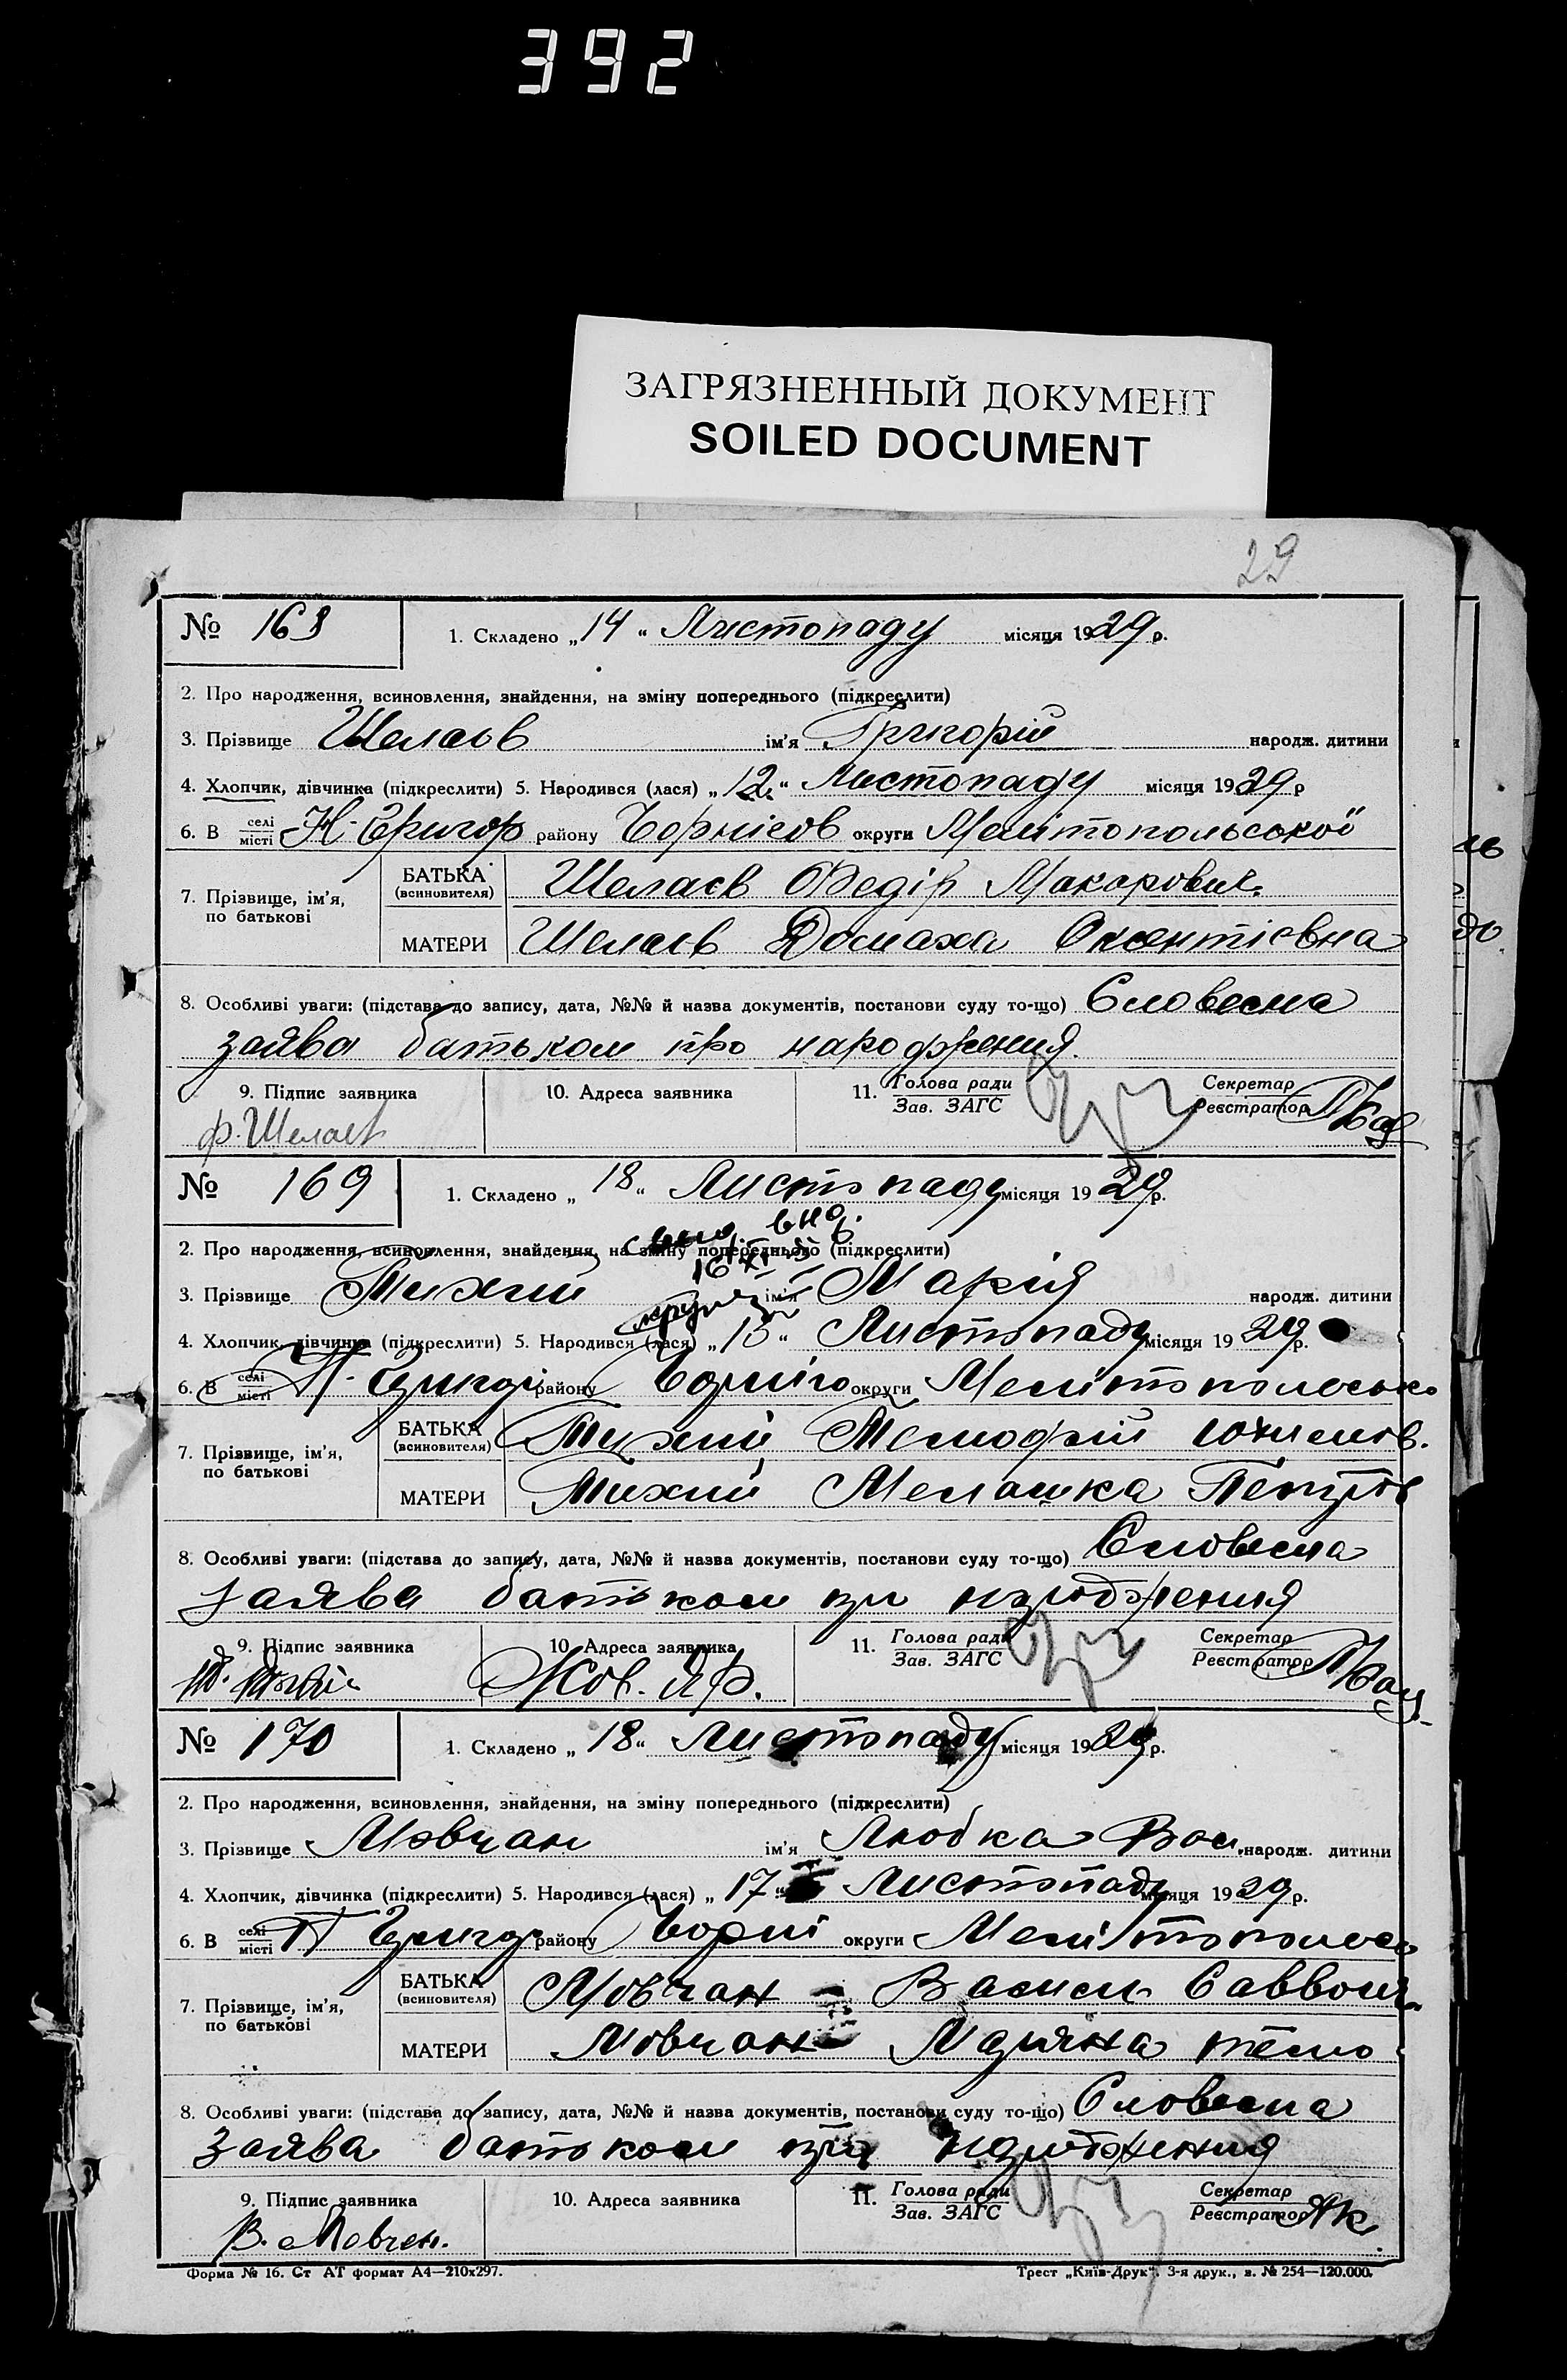 392
ЗАГРЯЗНЕННЫЙ ДОКУМЕНТ
SOILED DOCUMENT
29
№ 168 1. Складено „ 14 “ Листопаду місяця 1929 р.
2. Про народження, всиновлення, знайдення, на зміну попереднього (підкреслити)
3. Прізвище Шелаєв ім'я Григорій народж. дитини
4. Хлопчик, дівчинка (підкреслити) 5. Народився (лася) „ 12 “ Листопаду місяця 1929 р
6. В селі місті Н-Григор району Чернігов округи Мелітопольської
7. Прізвище, ім'я, по батькові
БАТЬКА (всиновителя) Шелаєв Федір Макарович
МАТЕРИ Шелаєв Домаха Оксентієвна
8. Особливі уваги: (підстава до запису, дата, №№ й назва документів, постанови суду то-що) Словесна
заява батьком про народження.
9. Підпис заявника 10. Адреса заявника 11. Голова ради Зав. ЗАГС Секретар Реєстратор
Ф. Шелаєв
№ 169 1. Складено „ 18 “ Листопаду місяця 1929 р.
2. Про народження, всиновлення, знайдення, на зміну попереднього (підкреслити)
3. Прізвище Тихий ім'я Марія народж. дитини
4. Хлопчик, дівчинка (підкреслити) 5. Народився (лася) „ 15 “ Листопаду місяця 1929 р.
6. В селі місті Н-Григор району Черніго округи Мелітопольсько
7. Прізвище, ім'я, по батькові
БАТЬКА (всиновителя) Тихий
МАТЕРИ Тихий Мелашка Петров
8. Особливі уваги: (підстава до запису, дата, №№ й назва документів, постанови суду то-що) Словесна
заява батьком про народження
9. Підпис заявника 10. Адреса заявника 11. Голова ради Зав. ЗАГС Секретар Реєстратор
№ 170 1. Складено „ 18 “ Листопаду місяця 1929 р.
2. Про народження, всиновлення, знайдення, на зміну попереднього (підкреслити)
3. Прізвище Мовчан ім'я Любка Вас. народж. дитини
4. Хлопчик, дівчинка (підкреслити) 5. Народився (лася) „ 17 “ Листопаду місяця 1929 р.
6. В селі місті Н Григор району Черні округи Мелітопольсь
7. Прізвище, ім'я, по батькові
БАТЬКА (всиновителя) Мовчан Васись Саввови
МАТЕРИ Мовчан
8. Особливі уваги: (підстава до запису, дата, №№ й назва документів, постанови суду то-що) Словесна
заява батьком про народження
9. Підпис заявника 10. Адреса заявника 11. Голова ради Зав. ЗАГС Секретар Реєстратор
В. Мовчан.
Форма № 16. Ст АТ формат А4—210х297. Трест „Київ-Друк“. 3-я друк., з. № 254—120.000.